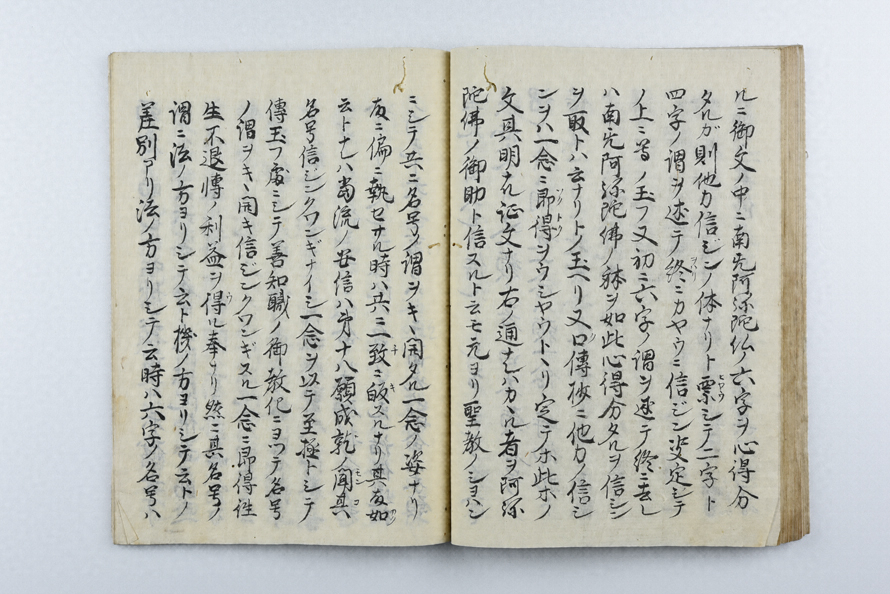 ルニ御文ノ中ニ南无阿弥陀仏ノ六字ヲ心得分
タルガ則他力信ジンノ体ナリト票シテ二字ト
四字ノ謂ヲ述テ終ニカヤウニ信ジン决定シテ
ノ上ニ等ノ玉フ又初ニ六字ノ謂ヲ述テ終ニ是レ
ハ南无阿弥陀佛ノ躰ヲ如此心得分タルヲ信ジン
ヲ取トハ云ナリトノ玉ヘリ又口傳抄ニ他力ノ信ジ
ンヲハ一念ニ即得ヲウシヤウトヘリ定テホ此ホノ
文其明ナル証文ナリ右ノ通ナレハカヽル者ヲ阿弥
陀佛ノ御助ト信スルト云モ元ヨリ聖教ノシヨハン
ニシテ共ニ名号ノ謂ヲキヽ開タル一念ノ姿ナリ
友ニ偏ニ執セサル時ハ共ニ一致ニ皈スルナリ其友如
云トナレハ當流ノ安信ハ第十八願成就ノ聞其
名号信ジンクワンギナイシ一念ヲ以テ至極トシテ
傳玉フ處ニシテ善知職ノ御教化ニヨツテ名号
ノ謂ヲキヽ開キ信ジンクワンギスル一念ニ即得徃
生不退轉ノ利益ヲ得ル奉ナリ然ニ其名号ノ
謂ニ法ノ方ヨリシテ云ト機ノ方ヨリシテ云トノ
差別アリ法ノ方ヨリシテ云時ハ六字ノ名号ハ